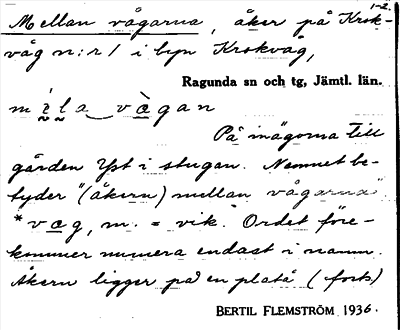 1-2.
Mellan vågarna, åker på Krok-
våg n:r 1 i byn Krokvåg,
Ragunda sn och tg, Jämtl. län.
På inägorna till
gården Yst i stugan. Namnet be-
tyder "(åkern) mellan vågarna"
*væg, m. = vik. Ordet före-
kommer numera endast i namn.
Åkern ligger på en platå (forts)
BERTIL FLEMSTRÖM 1936.